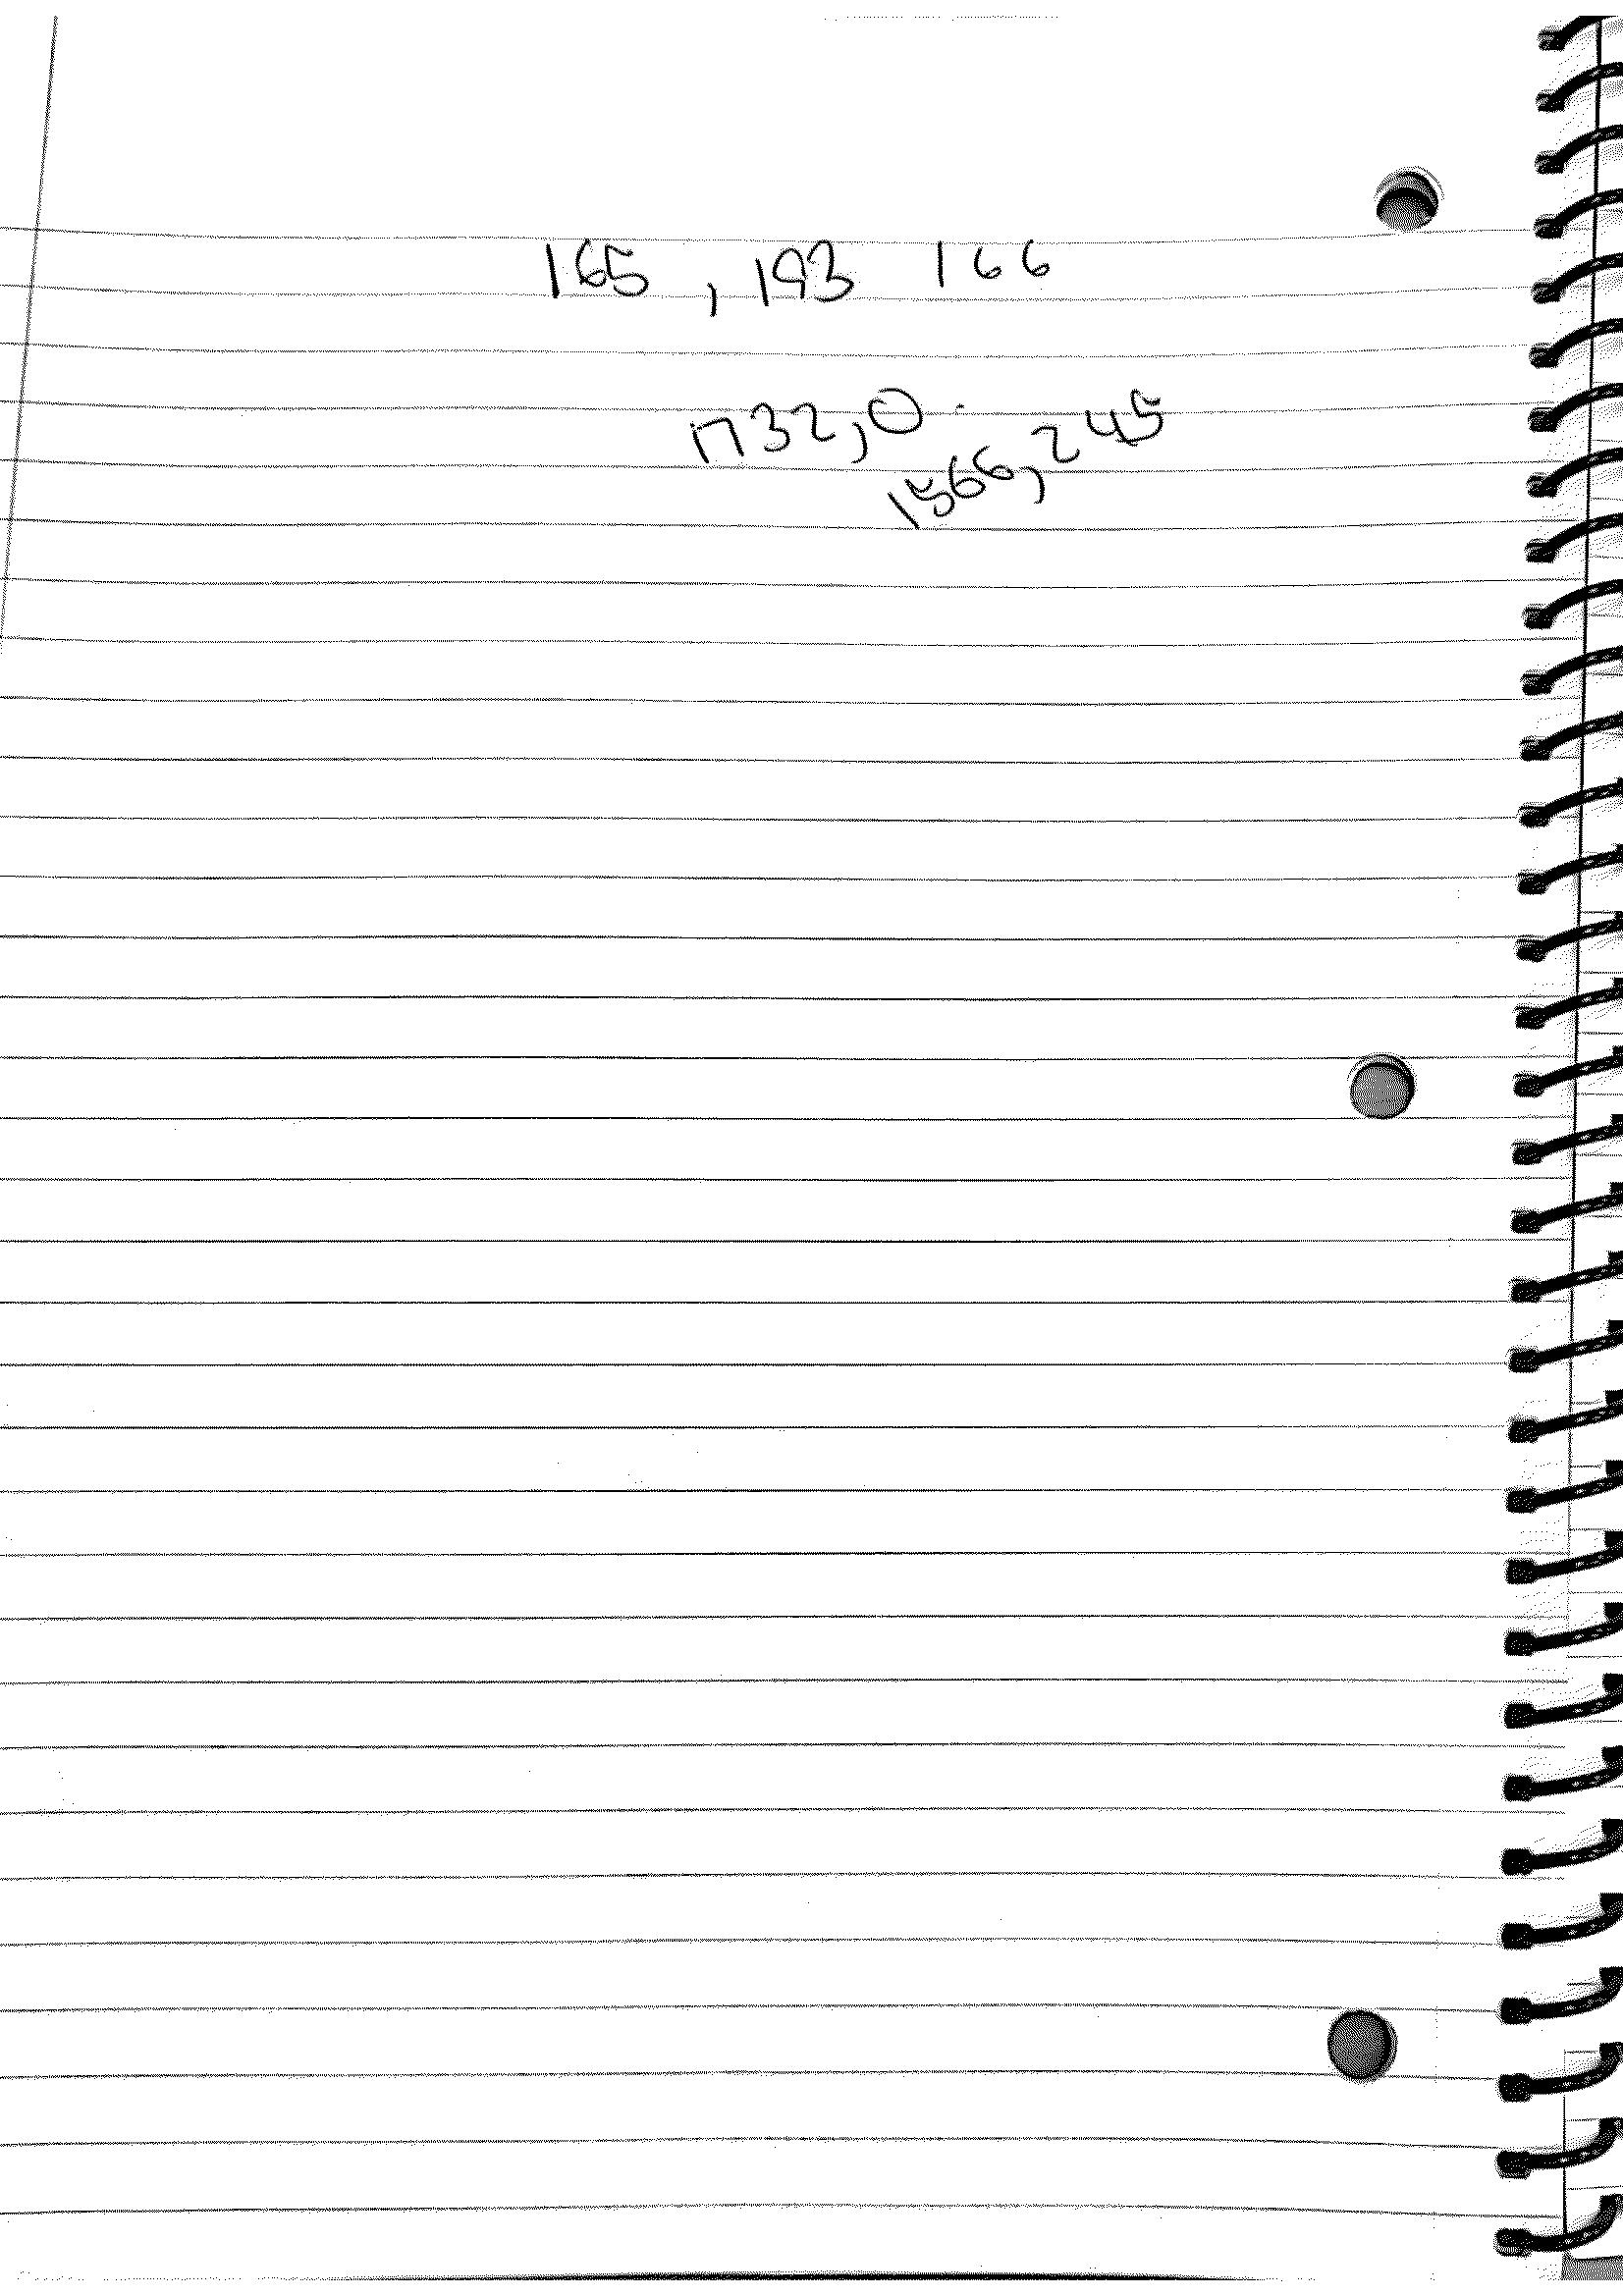 165 , 193 166
1732,0
1566,245